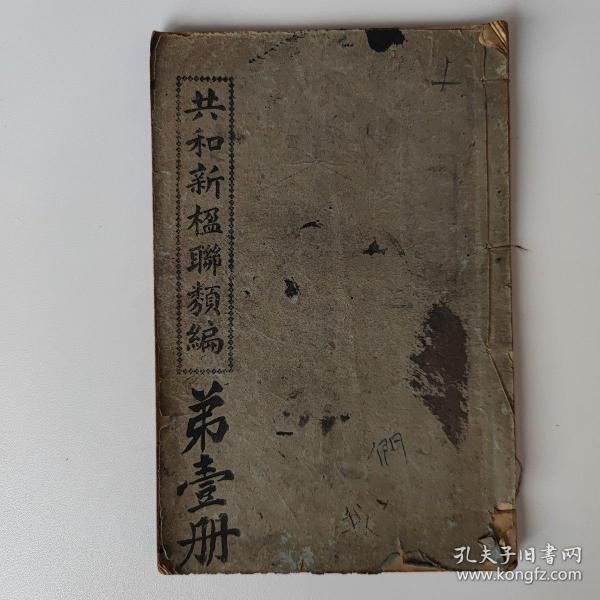 共和新楹聯類編
弟壹册
上
們
孔夫子旧書网
www.kongfz.com